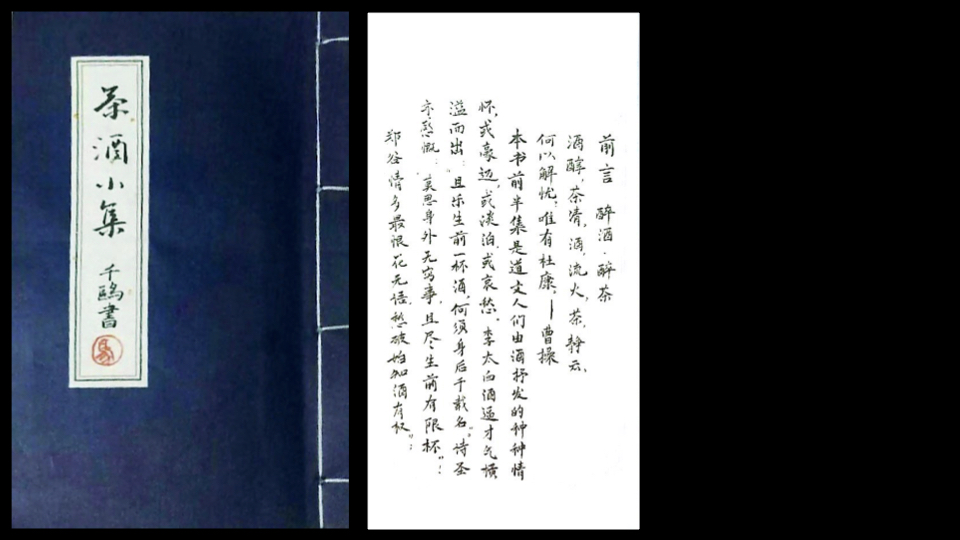 茶酒小集
千鷗書
前言 醉酒·醉茶
酒醇,茶清,酒,流火,茶,静云、
何以解忧,唯有杜康,——曹操
本书前半集是道文人们由酒抒发的种种情
怀,或豪迈,或淡泊,或哀愁,李太白酒逼才气横
溢而出:"且乐生前一杯酒,何须身后千载名",诗圣
亦感慨:"莫思身外无穷事,且尽生前有限杯":
郑谷情多最恨花无语,愁破始知酒有权":